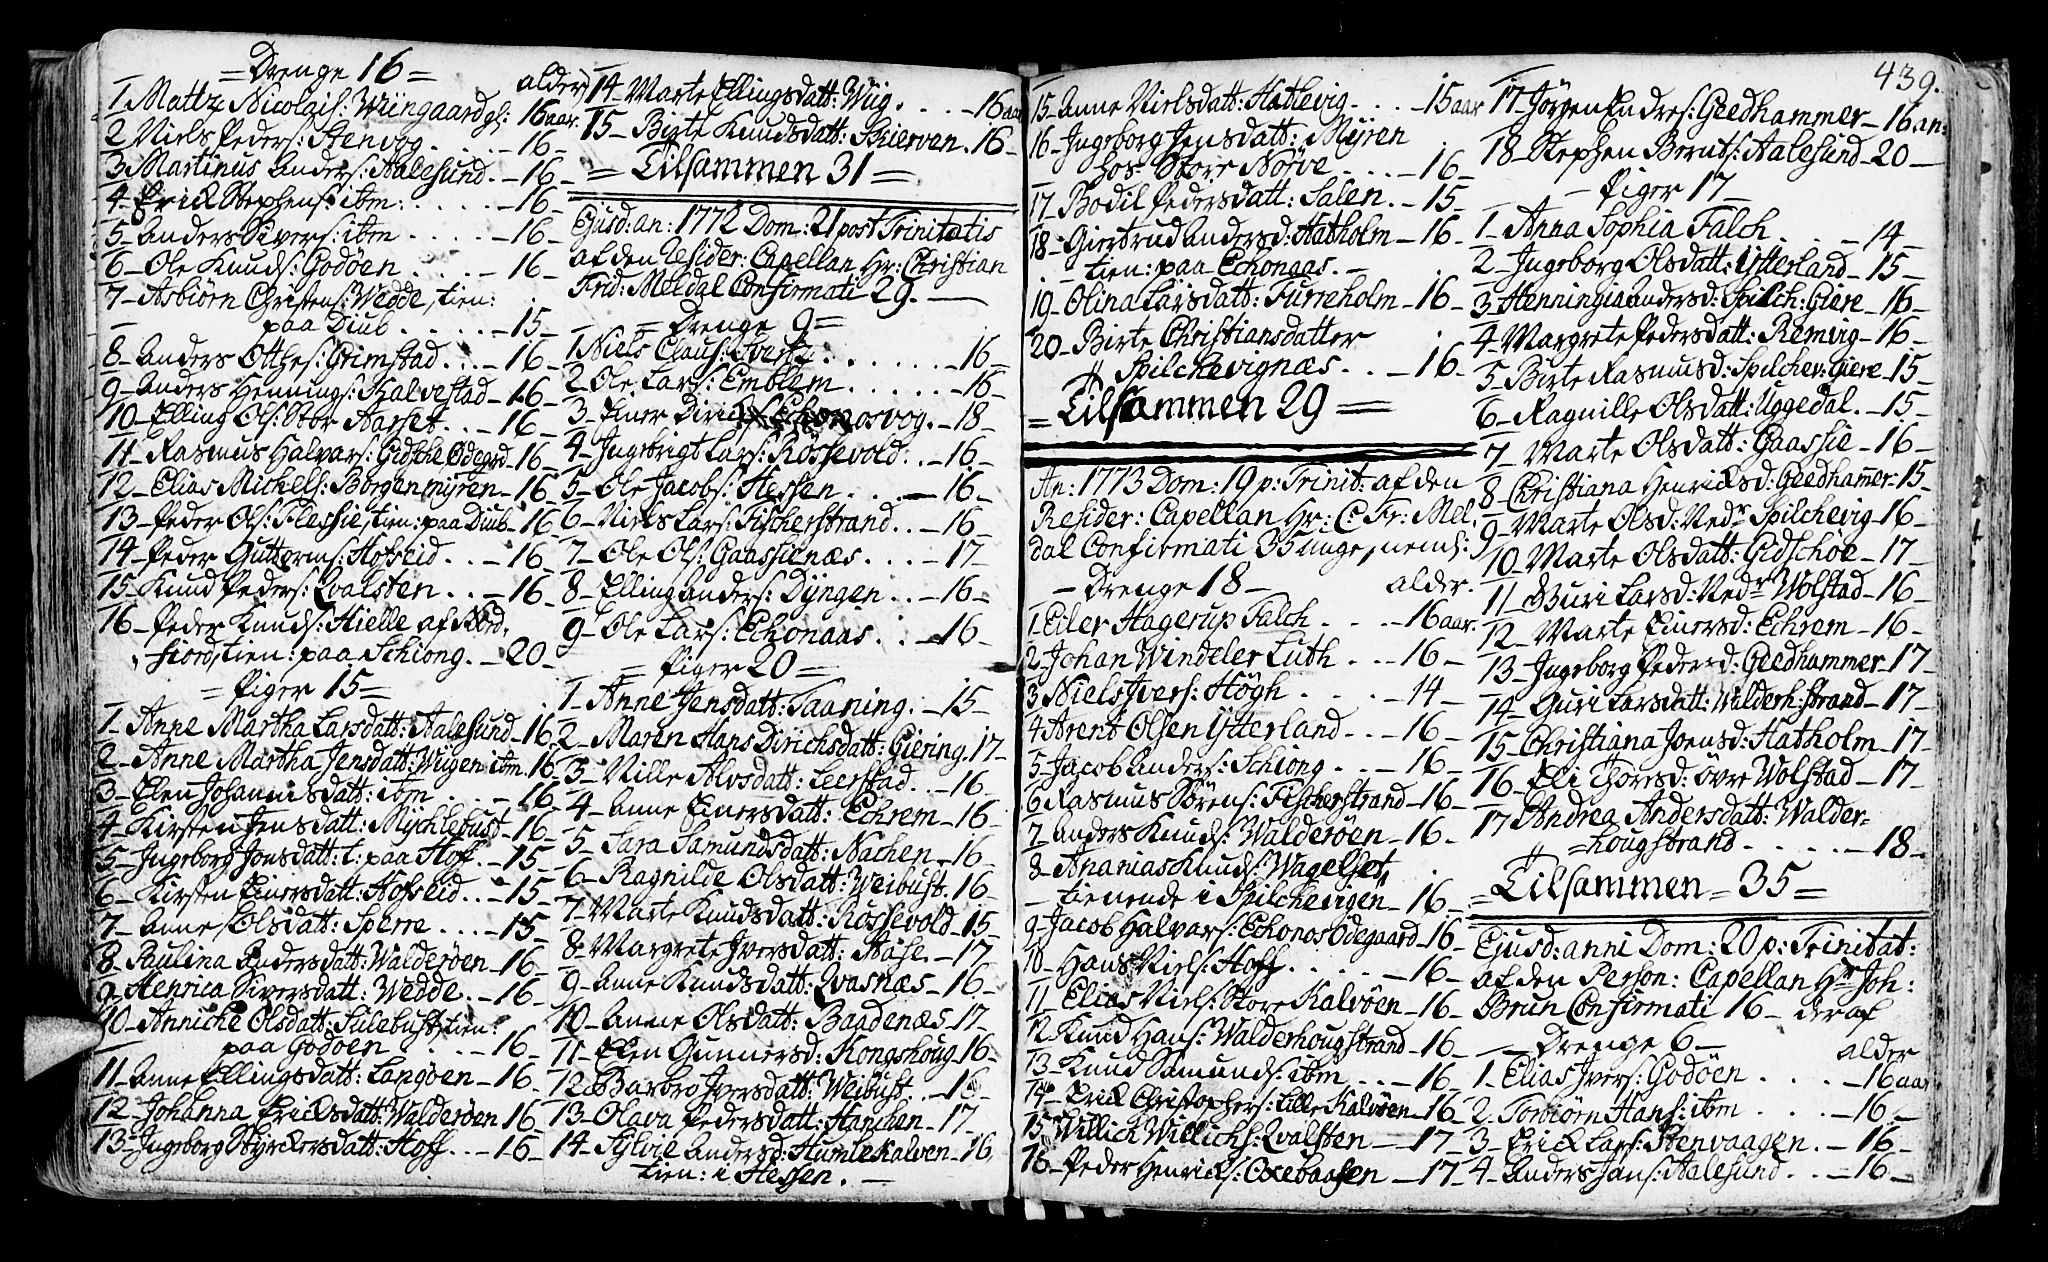 = Drenge 16 =
alder
1 Mattz Nicolais: Wiingaard gl: 16 aar.
2 Niels Peders: Stenvog . . . . - 16 -
3 Martinus Anders: Aalesund . - 16 -
4 - Erick Stephens: ibm: . . . . - 16 -
5 - Anders Sivers: ibm . . . . - 16 -
6 - Ole Knuds: Godöen . . . - 16 -
7 - Asbiörn Christens: Wedde, tien:
paa Diub . . . . . - 15 -
8 - Anders Otthes: Grimstad . . - 16 -
9 - Anders Hennings: Kalvestad - 16 -
10 - Elling Ols: Stor Aarset . . - 16 -
11 - Rasmus Halvars: Gidsche Ödegrd - 16 -
12 - Elias Mickels: Borgenmyren - 16 -
13 - Peder Ols: Flessie, tien: paa Diub - 16 -
14 - Peder Guttorms: Hofseid . . - 16 -
15 - Knud Peders: Qvalsten . . - 16 -
16 - Peder Knuds: Hielle af Nord,
fiord, tien: paa Schiong . - 20 -
= Piger 15 =
1 - Anne Martha Larsdatt: Aalesund - 16.
2 - Anne Martha Jensdatt: Wiigen ibm. 16.
3 - Elen Johannisdatt: ibm . . - 16 -
4 - Kirsten Jensdatt: Mychlebust - 16 -
5 - Ingeborg Jonsdatt: t: paa Hoff . - 15 -
6 - Kirsten Einersdatt: Hofseid . . - 15 -
7 - Anne Olsdatt: Sperre . . . . - 15 -
8 - Paulina Andersdatt: Walderöen - 16 -
9 - Henrica Siversdatt: Wedde . - 16 -
10 - Anniche Olsdatt: Sulebust, tien:
paa Godöen . . . - 16 -
11 - Anne Ellingsdatt: Langöen - 16 -
12 - Johanna Ericksdatt: Walderöen 16 -
13 - Ingeborg Styrckersdatt: Hoff . . - 16 -
14 - Marte Ellingsdatt: Wiig . . . . - 16 aar
15 - Birte Knudsdatt: Skierven . 16 -
= Tilsammen 31 =
Ejusd: an: 1772 Dom: 21 post Trinitatis
af den Resider: Capellan Hr: Christian
Frid: Meldal Confirmati 29. -
= Drenge 9 =
1 Niels Claus: . . . . . . - 16 -
2 Ole Lars: Emblem . . . . . - 16 -
3 - Einer Dirichs: Echonosvog . - 18 -
4 - Ingebrigt Lars: Rössevold . . - 16 -
5 - Ole Jacobs: Hessen . . . - 16 -
6 - Niels Lars: Fischerstrand . . - 16 -
7 - Ole Ols: Gaassienæs . . . - 17 -
8 - Elling Anders: Dyngen . . - 16 -
9 - Ole Lars: Echonaas . . - 16 -
= Piger 20 =
1 - Anne Jensdatt: Taaning . - 15 -
2 - Maren Hans Dirichsdatt: Giering . 17 -
3 - Nille Alvsdatt: Leerstad . . - 16 -
4 - Anne Einersdatt: Echrem - 16 -
5 - Sara Samundsdatt: Nachen . - 16 -
6 - Ragnilde Olsdatt: Weibust . 16 -
7 - Marte Knudsdatt: Rössevold - 15 -
8 - Margrete Iversdatt: Aase . - 17 -
9 - Anne Knudsdatt: Qvasnæs - 16 -
10 - Anne Olsdatt: Baadenæs - 17 -
11 - Elen Gunnersd: Kongshoug 16 -
12 - Barbro Iversdatt: Weibust . - 16 -
13 - Olava Pedersdatt: Hanchen - 17 -
14 - Sylvie Andersd: Humlekalven - 16.
tien: i Hessen . -
15 - Anne Nielsdatt: Hatlevig . . . - 15 aar
16 - Ingeborg Jensdatt: Myren
hos Store Nörve . . . - 16 -
17 - Bodil Pedersdatt: Salen . - 15 -
18 - Giertrud Andersd: Hatholm - 16 -
tien: paa Echonaas . -
19 - Olina Larsdatt: Furreholm - 16 -
20 - Birte Christiansdatter
Spilchevignæs . . - 16 -
= Tilsammen 29 =
An: 1773 Dom: 19 p: Trinit: af den
Resider: Capellan Hr: C: Fr: Mel,
dal Confirmati 35 unge, neml:
- Drenge 18 -
alder.
1 - Eiler Hagerup Falch . . . - 16 aar.
2 - Johan Windeler Luth . . . - 16 -
3 Niels Ivers: Högh . . . . - 14 -
4 Arent Olsen Ytterland . . . - 16 -
5 - Jacob Anders: Schiong . . . - 16 -
6 Rasmus Sörens: Fischerstrand - 16 -
7 - Anders Knuds: Walderöen - 16 -
8 - Ananias Knuds: Wagelset,
- tienende i Spilchevigen - 16 -
9 - Jacob Halvars: Echonos Ödegaard - 16 -
10 - Hans Niels: Hoff . . . . . - 16 -
11 - Elias Niels: Store Kalvöen - 16 -
12 - Knud Hans: Walderhougstrand - 16 -
13 - Knud Samunds: ibm . . - 16 -
14 - Erick Christophers: Lille Kalvöen - 16
15 - Willich Willichs: Qvalsten - 17 -
16 - Peder Henricks: Oxebaasen - 17 -
439.
17 - Jörgen Endres: Geedhammer - 16 an:
18 - Stephen Bernts: Aalesund - 20 -
- Piger 17 -
1 - Anna Sophia Falch . . - 14 -
2 - Ingeborg Olsdatt: Ytterland - 15 -
3 - Henningia Andersd: Spilch: Giere - 16 -
4 - Margrete Pedersdatt: Remvig - 16 -
5 - Birte Rasmusd: Spilchev: Giere - 15 -
6 - Ragnille Olsdatt: Uggedal . - 15 -
7 - Marte Olsdatt: Gaassie - 16 -
8 - Christiana Henricksd: Geedhammer - 15 -
9 - Marte Olsd: Nedr Spilchevig - 16 -
10 - Marte Olsdatt: Gidschöe - 17 -
11 - Guri Larsd: Nedr Wolstad - 16 -
12 - Marte Einersd: Echrem - 16 -
13 - Ingeborg Pedersd: Geedhammer - 17 -
14 - Guri Larsdatt: Walderh: strand - 17 -
15 - Christiana Joensd: Hatholm - 17 -
16 - Eli Thoresd: övre Wolstad - 17 -
17 Andrea Andersdatt: Walder-
=hougstrand . . . . . - 18 -
= Tilsammen = 35 =
Ejusd: anni Dom: 20 p: Trinitat:
af den Person: Capellan Hr Joh:
Brun Confirmati 16 - deraf
- Drenge 6 -
alder
1 - Elias Ivers: Godöen . . . . - 16 aar
2 - Torbiörn Hans: ibm . . . - 16 -
3 - Erick Lars: Stenvaagen . . - 16 -
4 - Anders Jans: Aalesund . . - 16 -